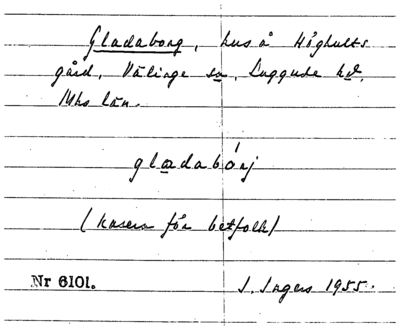 Gladaborg, hus å Höghults
gård, Välinge sn, Luggude hd,
Mhs län.
gladabórj
(kasern för betfolk)
Nr 6101. J. Ingers 1955.